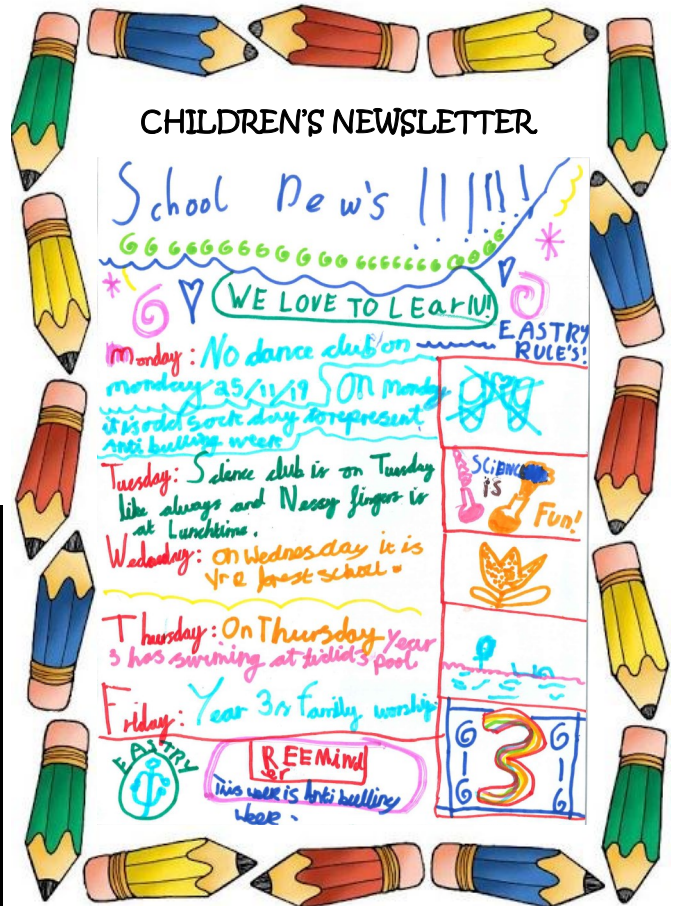 CHILDREN'S NEWSLETTER
School New's !!!!!!
WE LOVE TO LEarN!
EASTRY
RULE'S!
Monday: No dance club on
monday 25/11/19 ON Monday
it is odd sock day to represent
Anti bulling week
SCiENCE
iS
Fun!
Tuesday: Science club is on Tuesday
like always and Nessy fingers is
at Lunchtime.
Wednesday: on Wednesday it is
yr R forest school.
Thursday: On Thursday Year
3 has swimming at pool
Friday: Year 3s family worship
3
EASTRY
REEMind
er
This week is Anti bulling
week.